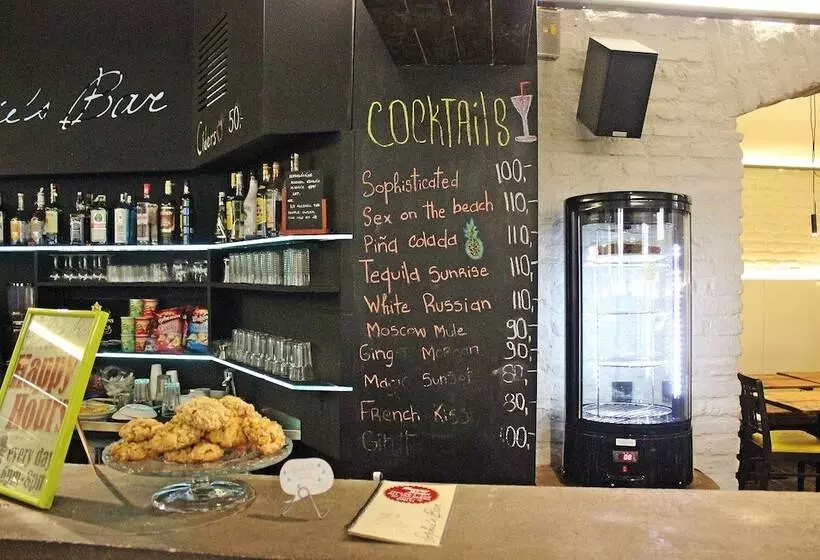 's Bar
Cheers! 50,-
COCKTAILS
Sophisticated 100,-
Sex on the beach 110,-
Piña colada 110,-
Tequila Sunrise 110,-
White Russian 110,-
Moscow Mule 90,-
Ging Morgan 90,-
Magic Sunset 80,-
French Kiss 80,-
Gin 100,-
Happy
Hours
every day